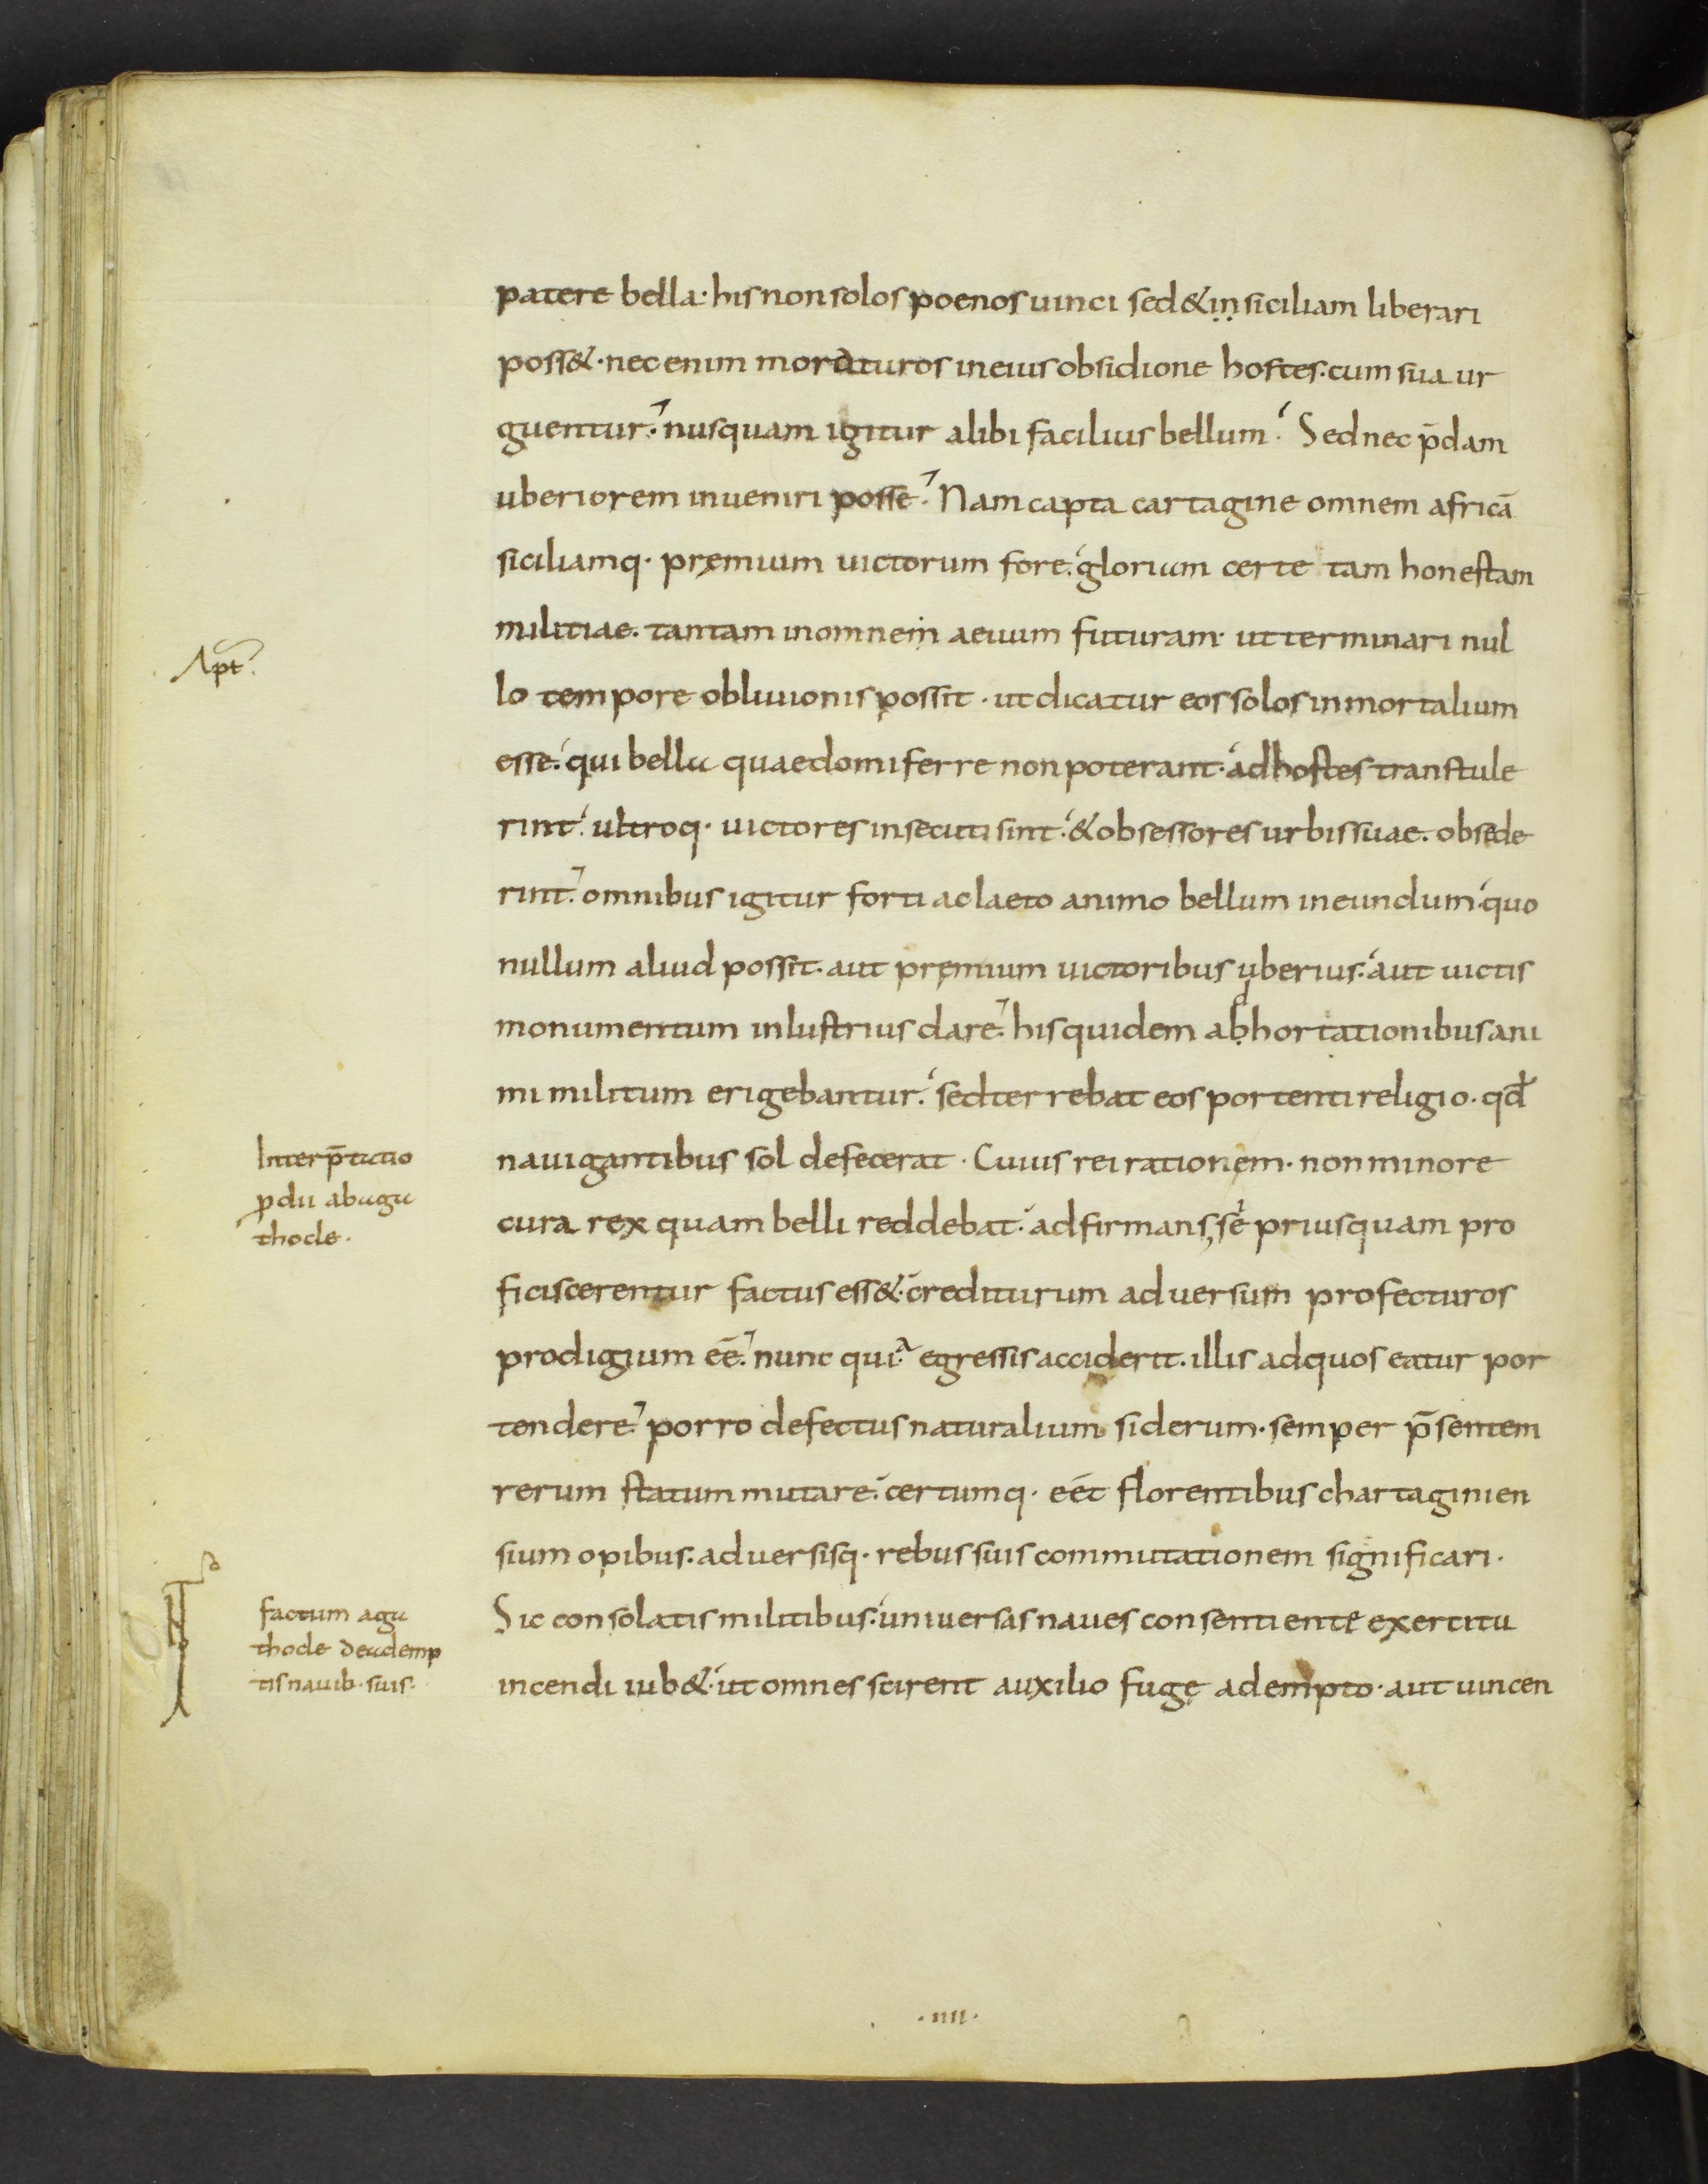 patere bella. his non solos poenos uinci sed & in siciliam liberari
poss&. nec enim moraturos in eius obsidione hostes. cum sua ur
guentur. nusquam igitur alibi facilius bellum. Sed nec p̄dam
uberiorem inueniri posse. Nam capta cartagine omnem africā
siciliamq. pręmium uictorum fore. gloriam certe tam honestam
militiae. tantam in omnem aeuum futuram. ut terminari nul
Apt.
lo tempore obliuionis possit. ut dicatur eos solos inmortalium
esse. qui bella quae domi ferre non poterant. ad hostes transtule
rint. ultroq. uictores insecuti sint. & obsessores urbis suae. obsede
rint. omnibus igitur forti ac laeto animo bellum ineundum. quo
nullum aliud possit. aut pręmium uictoribus uberius. aut uictis
monumentum inlustrius dare. his quidem abhortationibus ani
mi militum erigebantur. sed terrebat eos portenti religio. qđ
Interp̄tatio
pdii ab aga
thocle.
nauigantibus sol defecerat. Cuius rei rationem. non minore
cura rex quam belli reddebat. adfirmans, se priusquam pro
ficiscerentur factus ess&. crediturum aduersum profecturos
prodigium eē. nunc qui a egressis acciderit. illis ad quos eatur por
tendere. porro defectus naturalium siderum. semper p̄sentem
rerum statum mutare. certumq. eēt florentibus chartaginien
sium opibus. aduersisq. rebus suis commutationem significari.
factum aga
thocle de ademp
tis nauib. suis.
Sic consolatis militibus. uniuersas naues consentiente exercitu
incendi iub&. ut omnes scirent auxilio fugę adempto. aut uincen
.IIII.